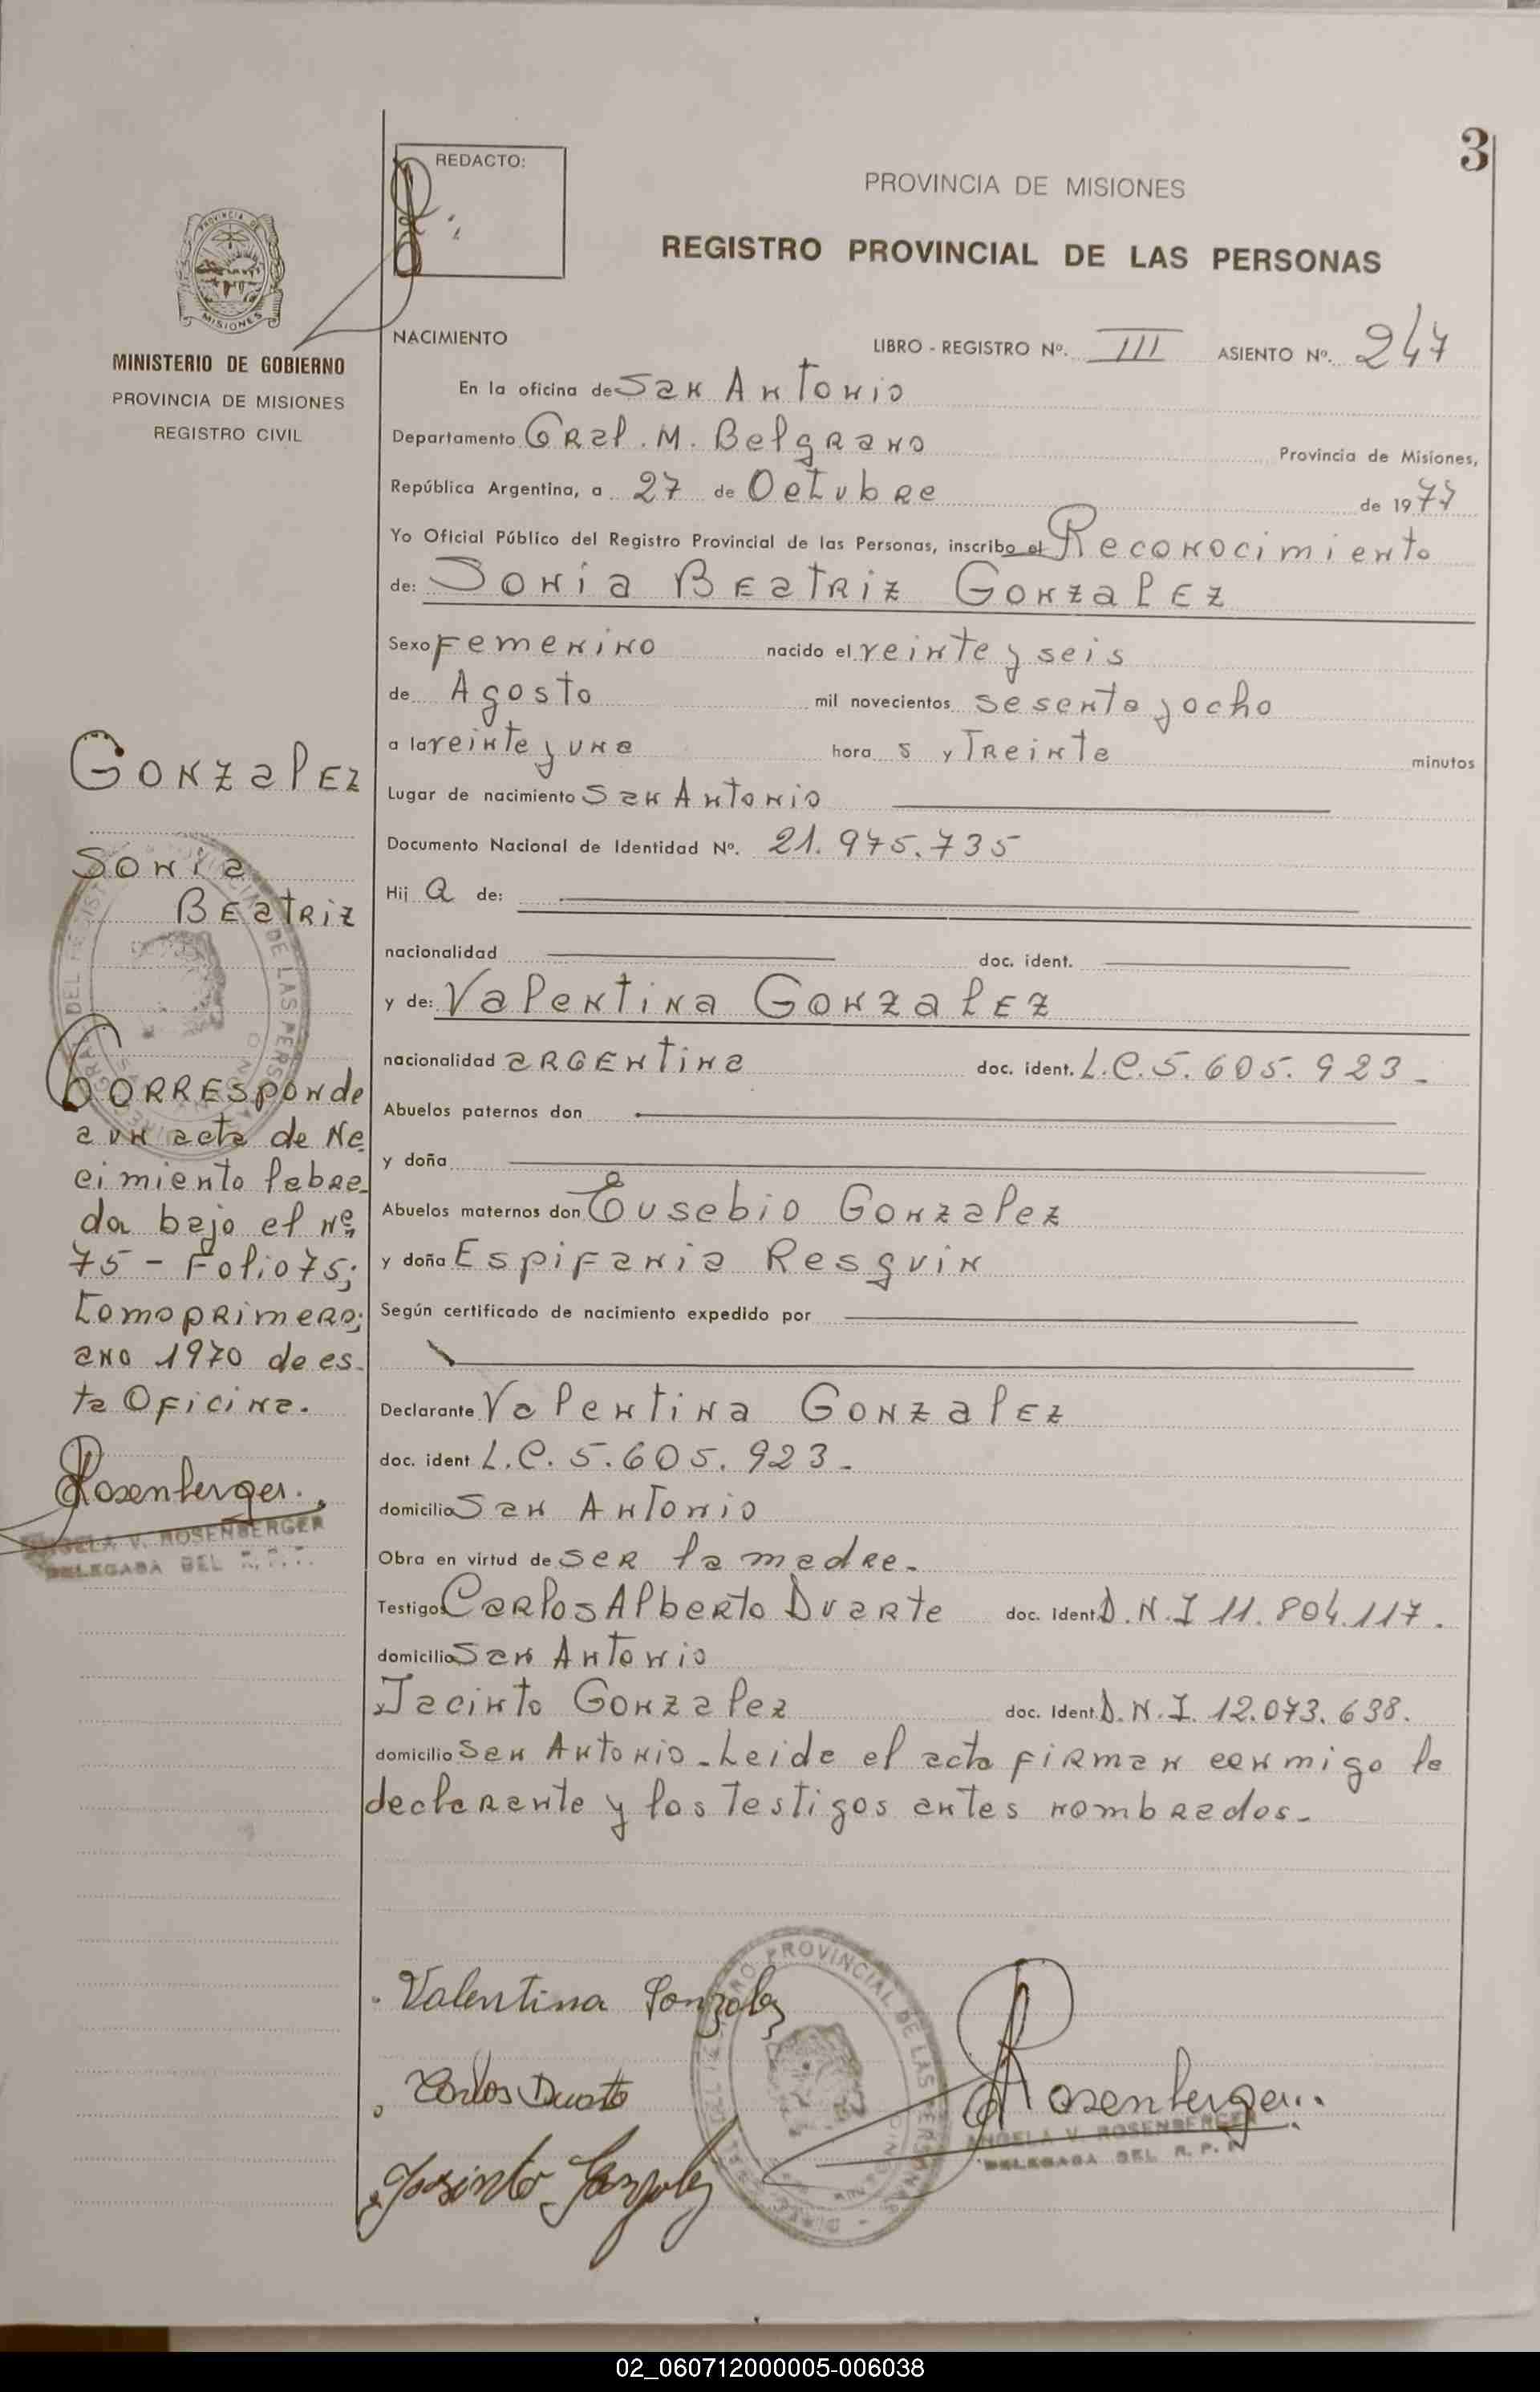 3
REDACTO:
PROVINCIA DE MISIONES
REGISTRO PROVINCIAL DE LAS PERSONAS
MISIONES
MINISTERIO DE GOBIERNO
PROVINCIA DE MISIONES
REGISTRO CIVIL
NACIMIENTO LIBRO - REGISTRO Nº. III ASIENTO Nº. 247
En la oficina de San Antonio
Departamento Gral. M. Belgrano Provincia de Misiones,
República Argentina, a 27 de Octubre de 1977
Yo Oficial Público del Registro Provincial de las Personas, inscribo el Reconocimiento
de: Sonia Beatriz Gonzalez
Sexo Femenino nacido el veinte y seis
de Agosto mil novecientos sesenta y ocho
a la veinte y una hora s y Treinta minutos
Lugar de nacimiento San Antonio
Documento Nacional de Identidad Nº. 21.975.735
Hij a de:
nacionalidad doc. ident.
y de: Valentina Gonzalez
nacionalidad argentina doc. ident. L.C. 5.605.923-
Abuelos paternos don
y doña
Abuelos maternos don Eusebio Gonzalez
y doña Espifania Resquin
Según certificado de nacimiento expedido por
Declarante Valentina Gonzalez
doc. ident L.C. 5.605.923-
domicilio San Antonio
Obra en virtud de ser la madre-
Testigos Carlos Alberto Duarte doc. Ident. D.N.I 11.804.117.
domicilio San Antonio
y Jacinto Gonzalez doc. Ident. D.N.I. 12.073.638.
domicilio San Antonio- Leida el acta firman conmigo la
declarante y los Testigos antes nombrados-
Gonzalez
Sonia
Beatriz
Corresponde
a un acta de Na
cimiento labra-
da bajo el Nº
75 - Folio 75;
Tomo primero;
ano 1970 de es-
ta Oficina.
Rosenberger.
ANGELA V. ROSENBERGER
DELEGADA DEL R. P. P.
Valentina Gonzalez
Carlos Duarte
Jasinto Gonzalez
PROVINCIAL DE LAS PERSONAS
Rosenberger..
ANGELA V. ROSENBERGER
DELEGADA DEL R. P. P.
02_060712000005-006038